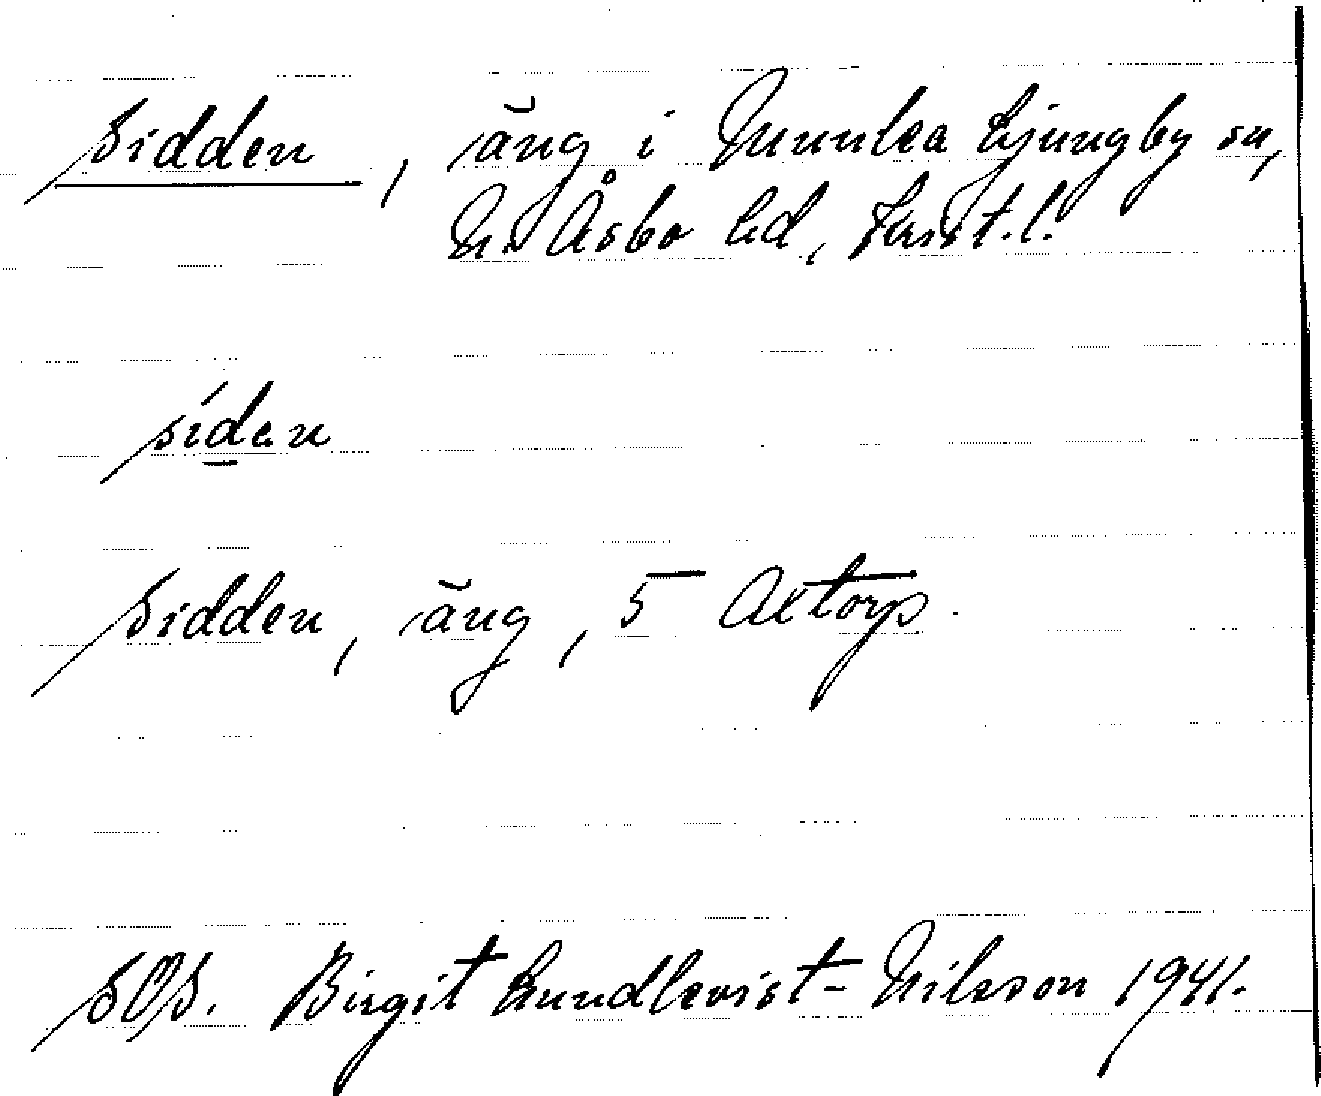 Sidden, äng i Munka Ljungby sn,
N. Åsbo hd, Krist. l.
síden
Sidden, äng, 5 Axtorp.
SOS. Birgit Lundkvist-Nilsson 1941.